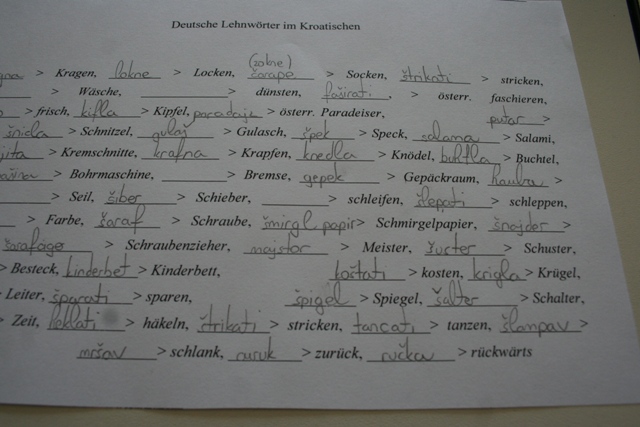 Deutsche Lehnwörter im Kroatischen
(zokne)
> Kragen, lokne > Locken, čarape > Socken, štrikati > stricken,
> Wäsche, > dünsten, faširati, > österr. faschieren,
> frisch, kifla > Kipfel, paradajz > österr. Paradeiser, putar >
šnicla > Schnitzel, gulaš > Gulasch, špek > Speck, salama > Salami,
> Kremschnitte, krafna > Krapfen, knedla > Knödel, buhtla > Buchtel,
> Bohrmaschine, > Bremse, gepek > Gepäckraum, hauba >
> Seil, šiber > Schieber, > schleifen, šlepati > schleppen,
> Farbe, šaraf > Schraube, šmirgl papir > Schmirgelpapier, šnajder >
> Schraubenzieher, majstor > Meister, šuster > Schuster,
> Besteck, kinderbet > Kinderbett, koštati > kosten, krigla > Krügel,
Leiter, šparati > sparen, špigel > Spiegel, šalter > Schalter,
> Zeit, heklati > häkeln, štrikati > stricken, tancati > tanzen, šlampav >
mršav > schlank, > zurück, > rückwärts